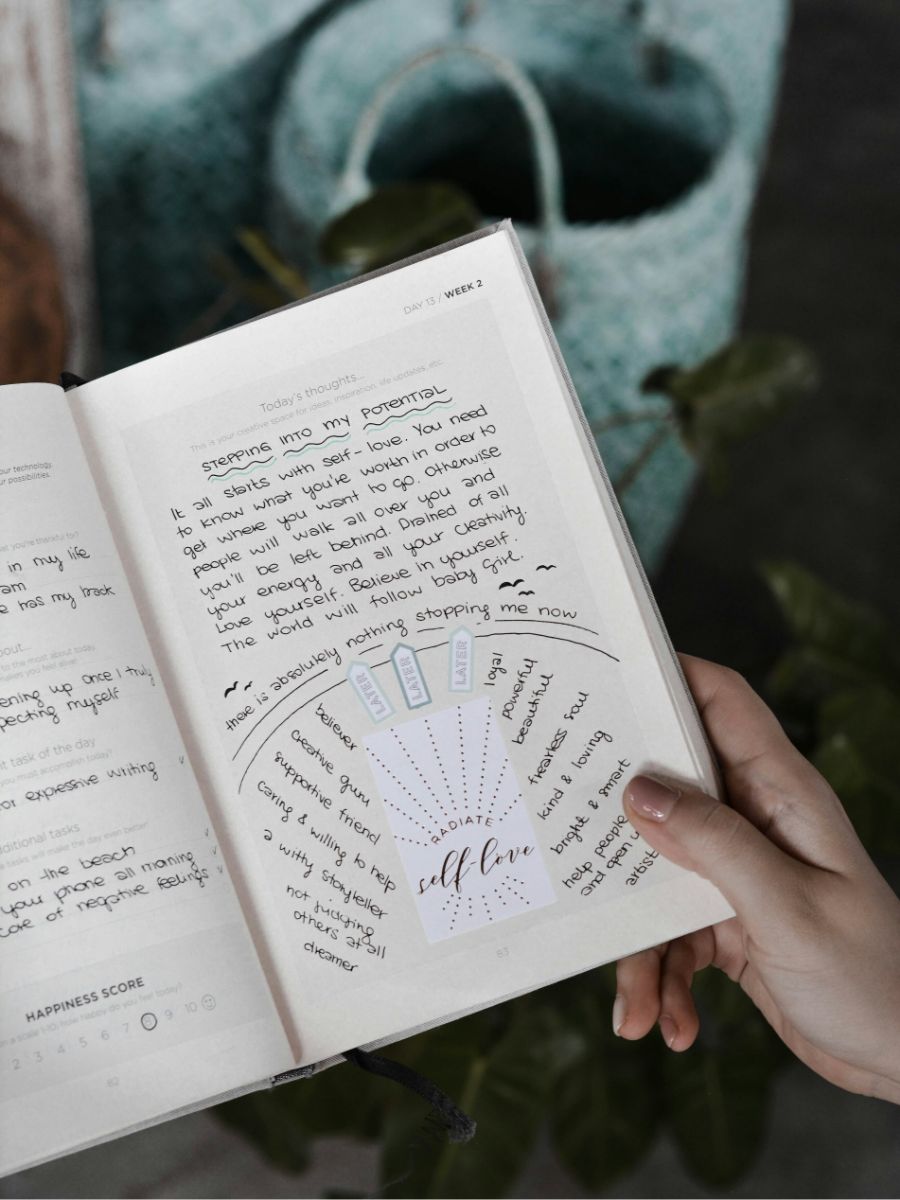 our technology.
ur possibilities.
at you're thankful to?
in my life
am
e has my back
out...
to the most about today
makes you feel alive!
ening up once I truly
pecting myself
nt task of the day
you must accomplish today?
or expressive writing
ditional tasks
tasks will make the day even better
on the beach
your phone all morning
care of negative feelings
HAPPINESS SCORE
on a scale 1-10, how happy do you feel today?
2 3 4 5 6 7 8 9 10
82
DAY 13 / WEEK 2
Today's thoughts...
This is your creative space for ideas, inspiration, life updates, etc.
STEPPING INTO MY POTENTIAL
It all starts with self-love. You need
to know what you're worth in order to
get where you want to go. Otherwise
people will walk all over you and
you'll be left behind. Drained of all
your energy and all your creativity.
Love yourself. Believe in yourself.
The world will follow baby girl.
there is absolutely nothing stopping me now
LATER
LATER
LATER
believer
creative guru
supportive friend
caring & willing to help
a witty storyteller
not judging
others at all
dreamer
RADIATE
self-love
loyal
powerful
beautiful
fearless soul
kind & loving
bright & smart
help people
and open u
artist
83